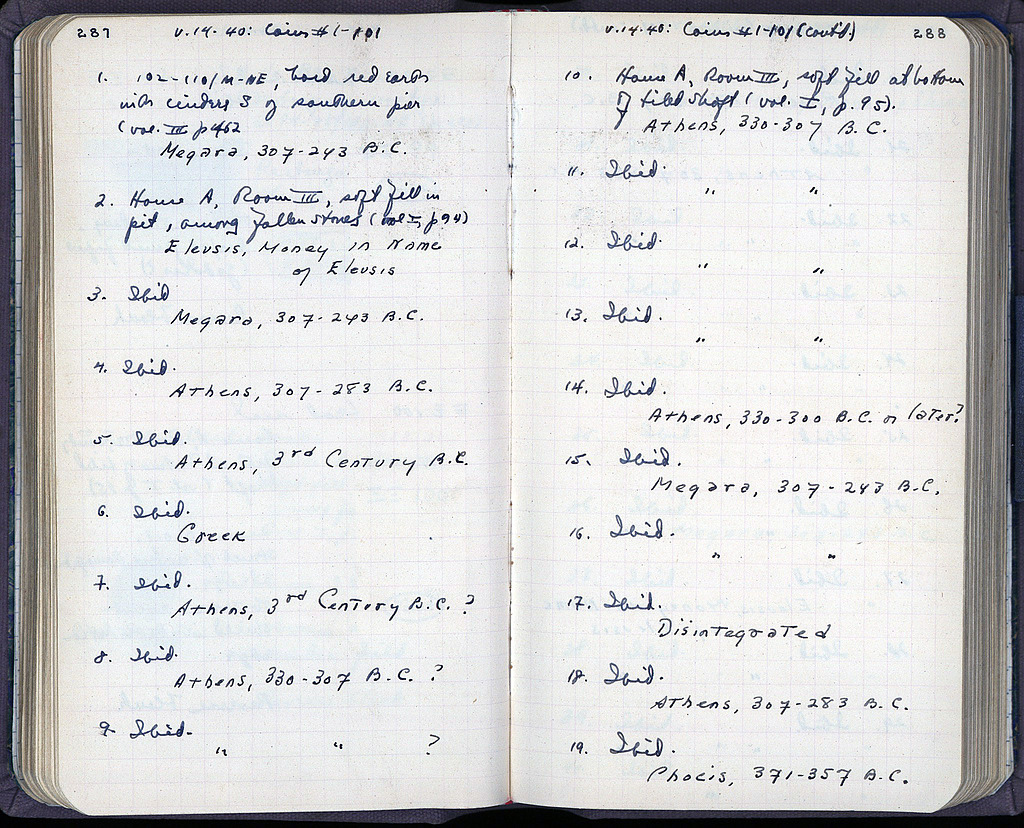 287 V.14.40: Coins #1-101
1. 102-110/M-NE, hard red earth
with cinders S of southern pier
(vol. III p462
Megara, 307-243 B.C.
2. House A, Room III, soft fill in
pit, among fallen stones (vol I, p94)
Eleusis, Money in Name
of Eleusis
3. Ibid
Megara, 307-243 B.C.
4. Ibid.
Athens, 307-283 B.C.
5. Ibid.
Athens, 3rd Century B.C.
6. Ibid.
Greek
7. Ibid.
Athens, 3rd Century B.C. ?
8. Ibid.
Athens, 330-307 B.C. ?
9. Ibid.
" " ?
V.14.40: Coins #1-101 (cont'd.) 288
10. House A, Room III, soft fill at bottom
of tiled shaft (vol. I, p. 95).
Athens, 330-307 B.C.
11. Ibid.
" "
12. Ibid.
" "
13. Ibid.
" "
14. Ibid.
Athens, 330-300 B.C. or later?
15. Ibid.
Megara, 307-243 B.C.
16. Ibid.
" "
17. Ibid.
Disintegrated
18. Ibid.
Athens, 307-283 B.C.
19. Ibid.
Phocis, 371-357 B.C.